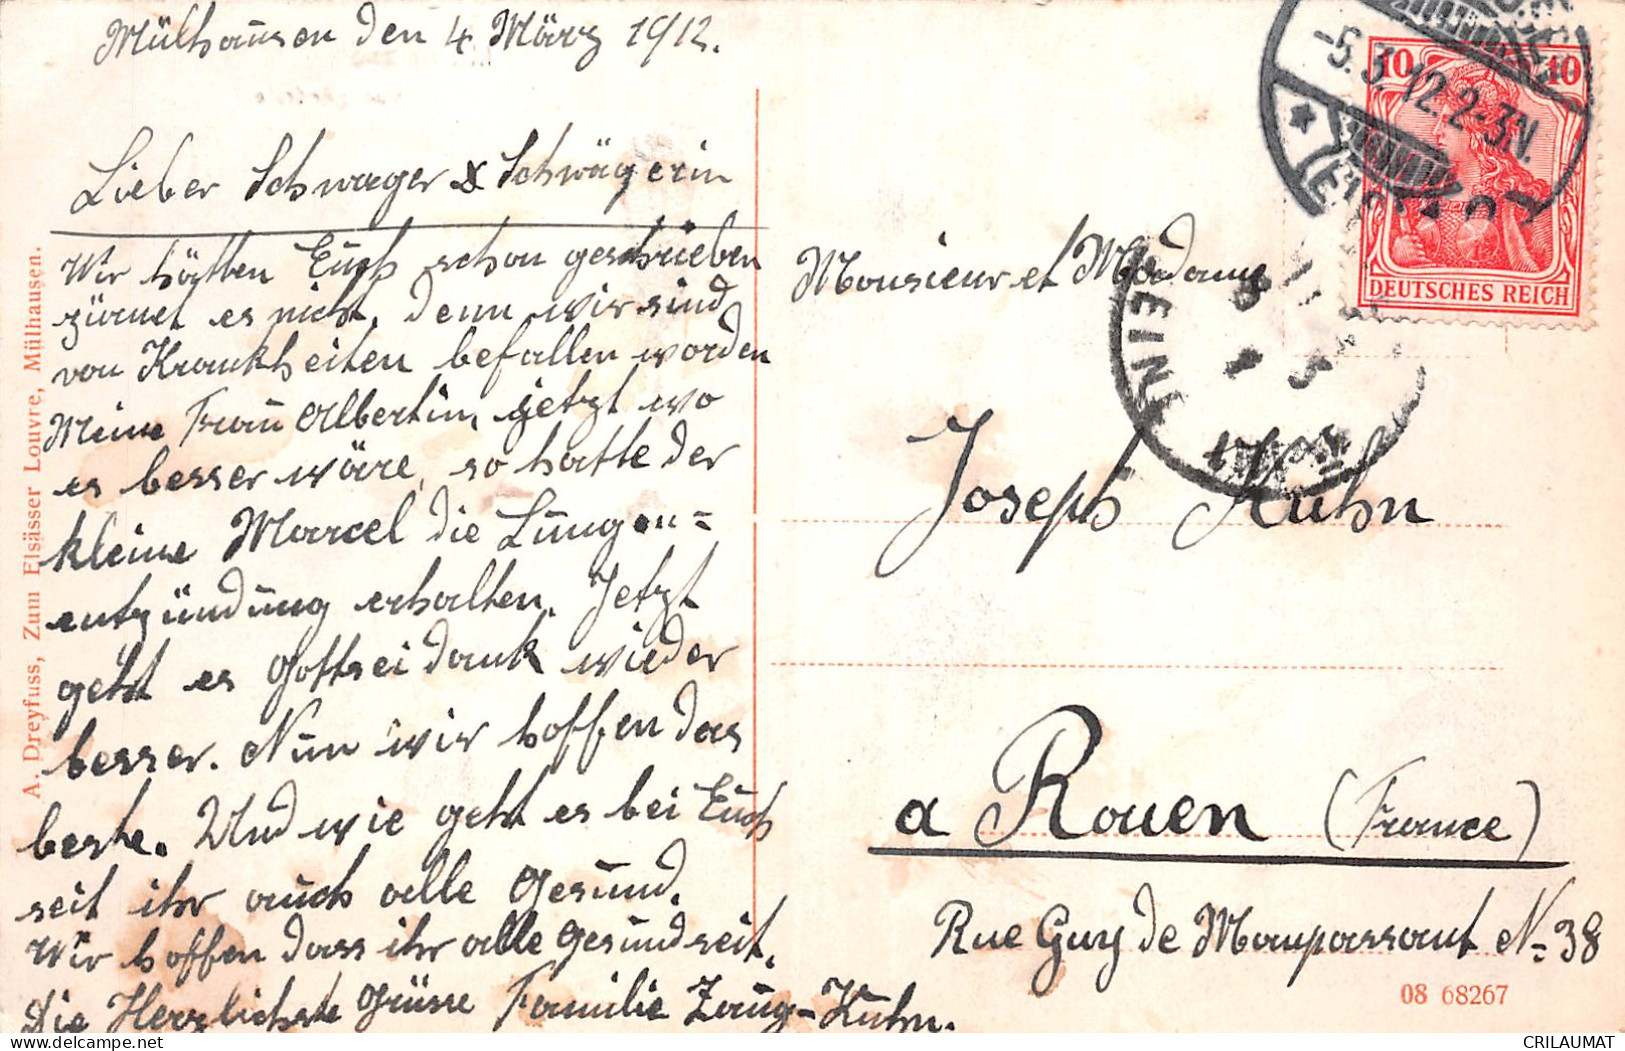 Mülhausen den 4 März 1912.
Lieber Schwager & Schwägerin
Wir hätten Euch schon geschrieben
zürnet es nicht. Denn wir sind
von Krankheiten befallen worden
Meine Frau Albertin, jetzt wo
es besser wäre, so hatte der
kleine Marcel die Lungen=
entzündung erhalten. Jetzt
geht es Gottseidank wieder
besser. Nun wir hoffen das
beste. Und wie geht es bei Euch
seit ihr auch alle Gesund.
Wir hoffen dass ihr alle Gesund seit.
Die Herzlichste Grüsse Familie Zaug-Kuhn.
A. Dreyfuss, Zum Elsässer Louvre, Mülhausen.
Monsieur et Madame
Joseph Kuhn
a Rouen (France)
Rue Guy de Maupassant No 38
08 68267
10 10
DEUTSCHES REICH
-5.3.12.2-3N.
EIN
CRILAUMAT